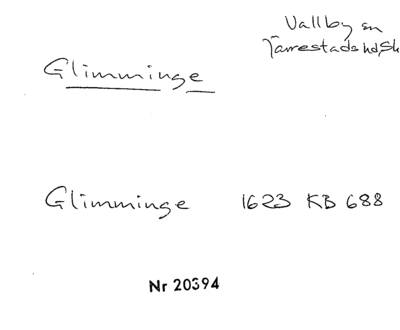 Vallby sn
Järrestads hd, Sk
Glimminge
Glimminge 1623 KB 688
Nr 20394